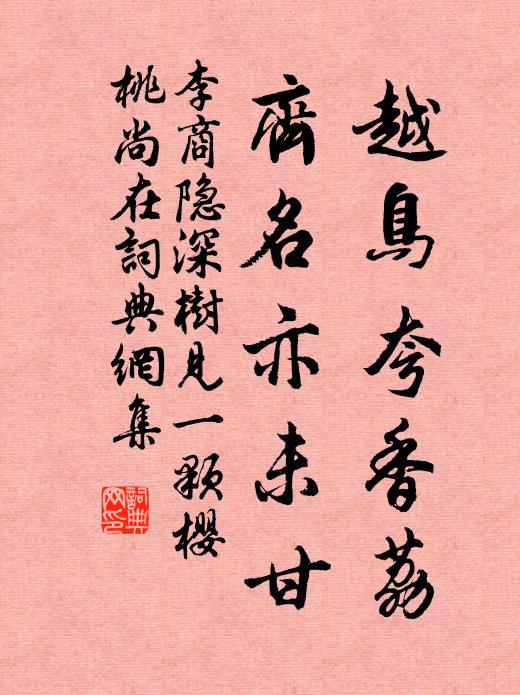 越鳥夸香荔
齊名亦未甘
李商隐深樹見一顆櫻
桃尚在詞典網集
詞典网印